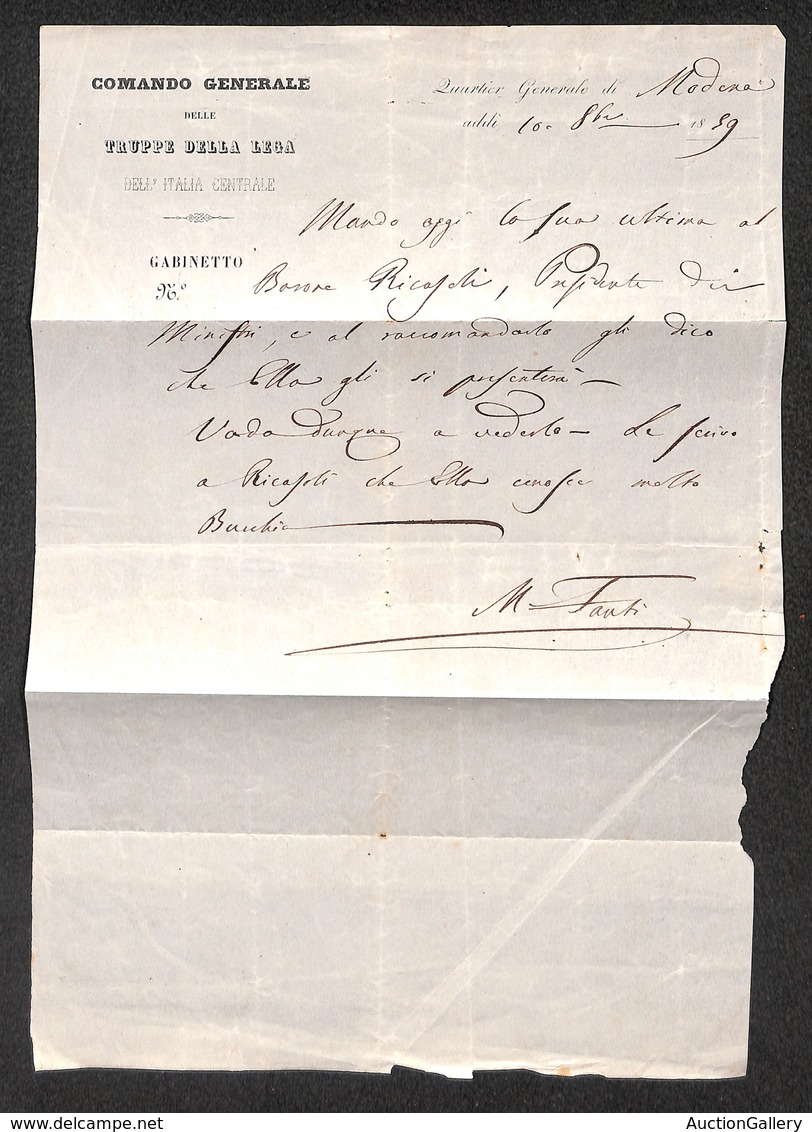 COMANDO GENERALE
DELLE
TRUPPE DELLA LEGA
DELL' ITALIA CENTRALE
GABINETTO
N.º
Quartier Generale di Modena
addì 10 8bre 1859
Mando oggi la sua ultima al
Barone Ricasoli, Presidente dei
Ministri, e al raccomandarlo gli dico
che Ella gli si presenterà —
Vada dunque a vederlo — Le scrivo
a Ricasoli che Ella conosce molto
Bucchia
M Fanti
AuctionGallery